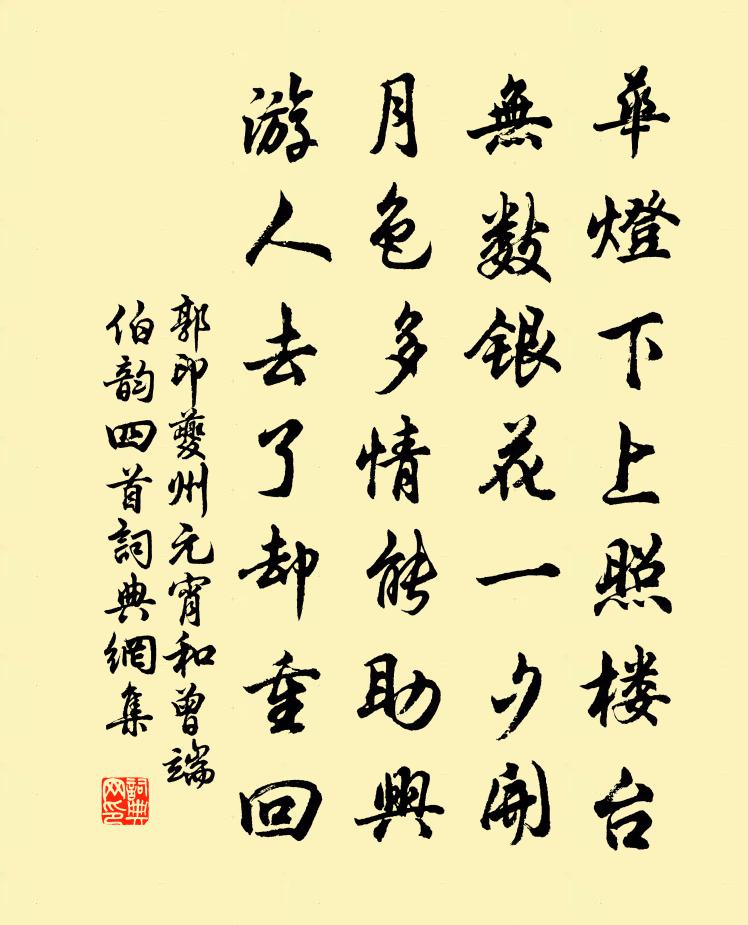 華燈下上照楼台
無数銀花一夕開
月色多情能助興
游人去了却重回
郭印夔州元宵和曾端
伯韵四首詞典網集
詞典网印